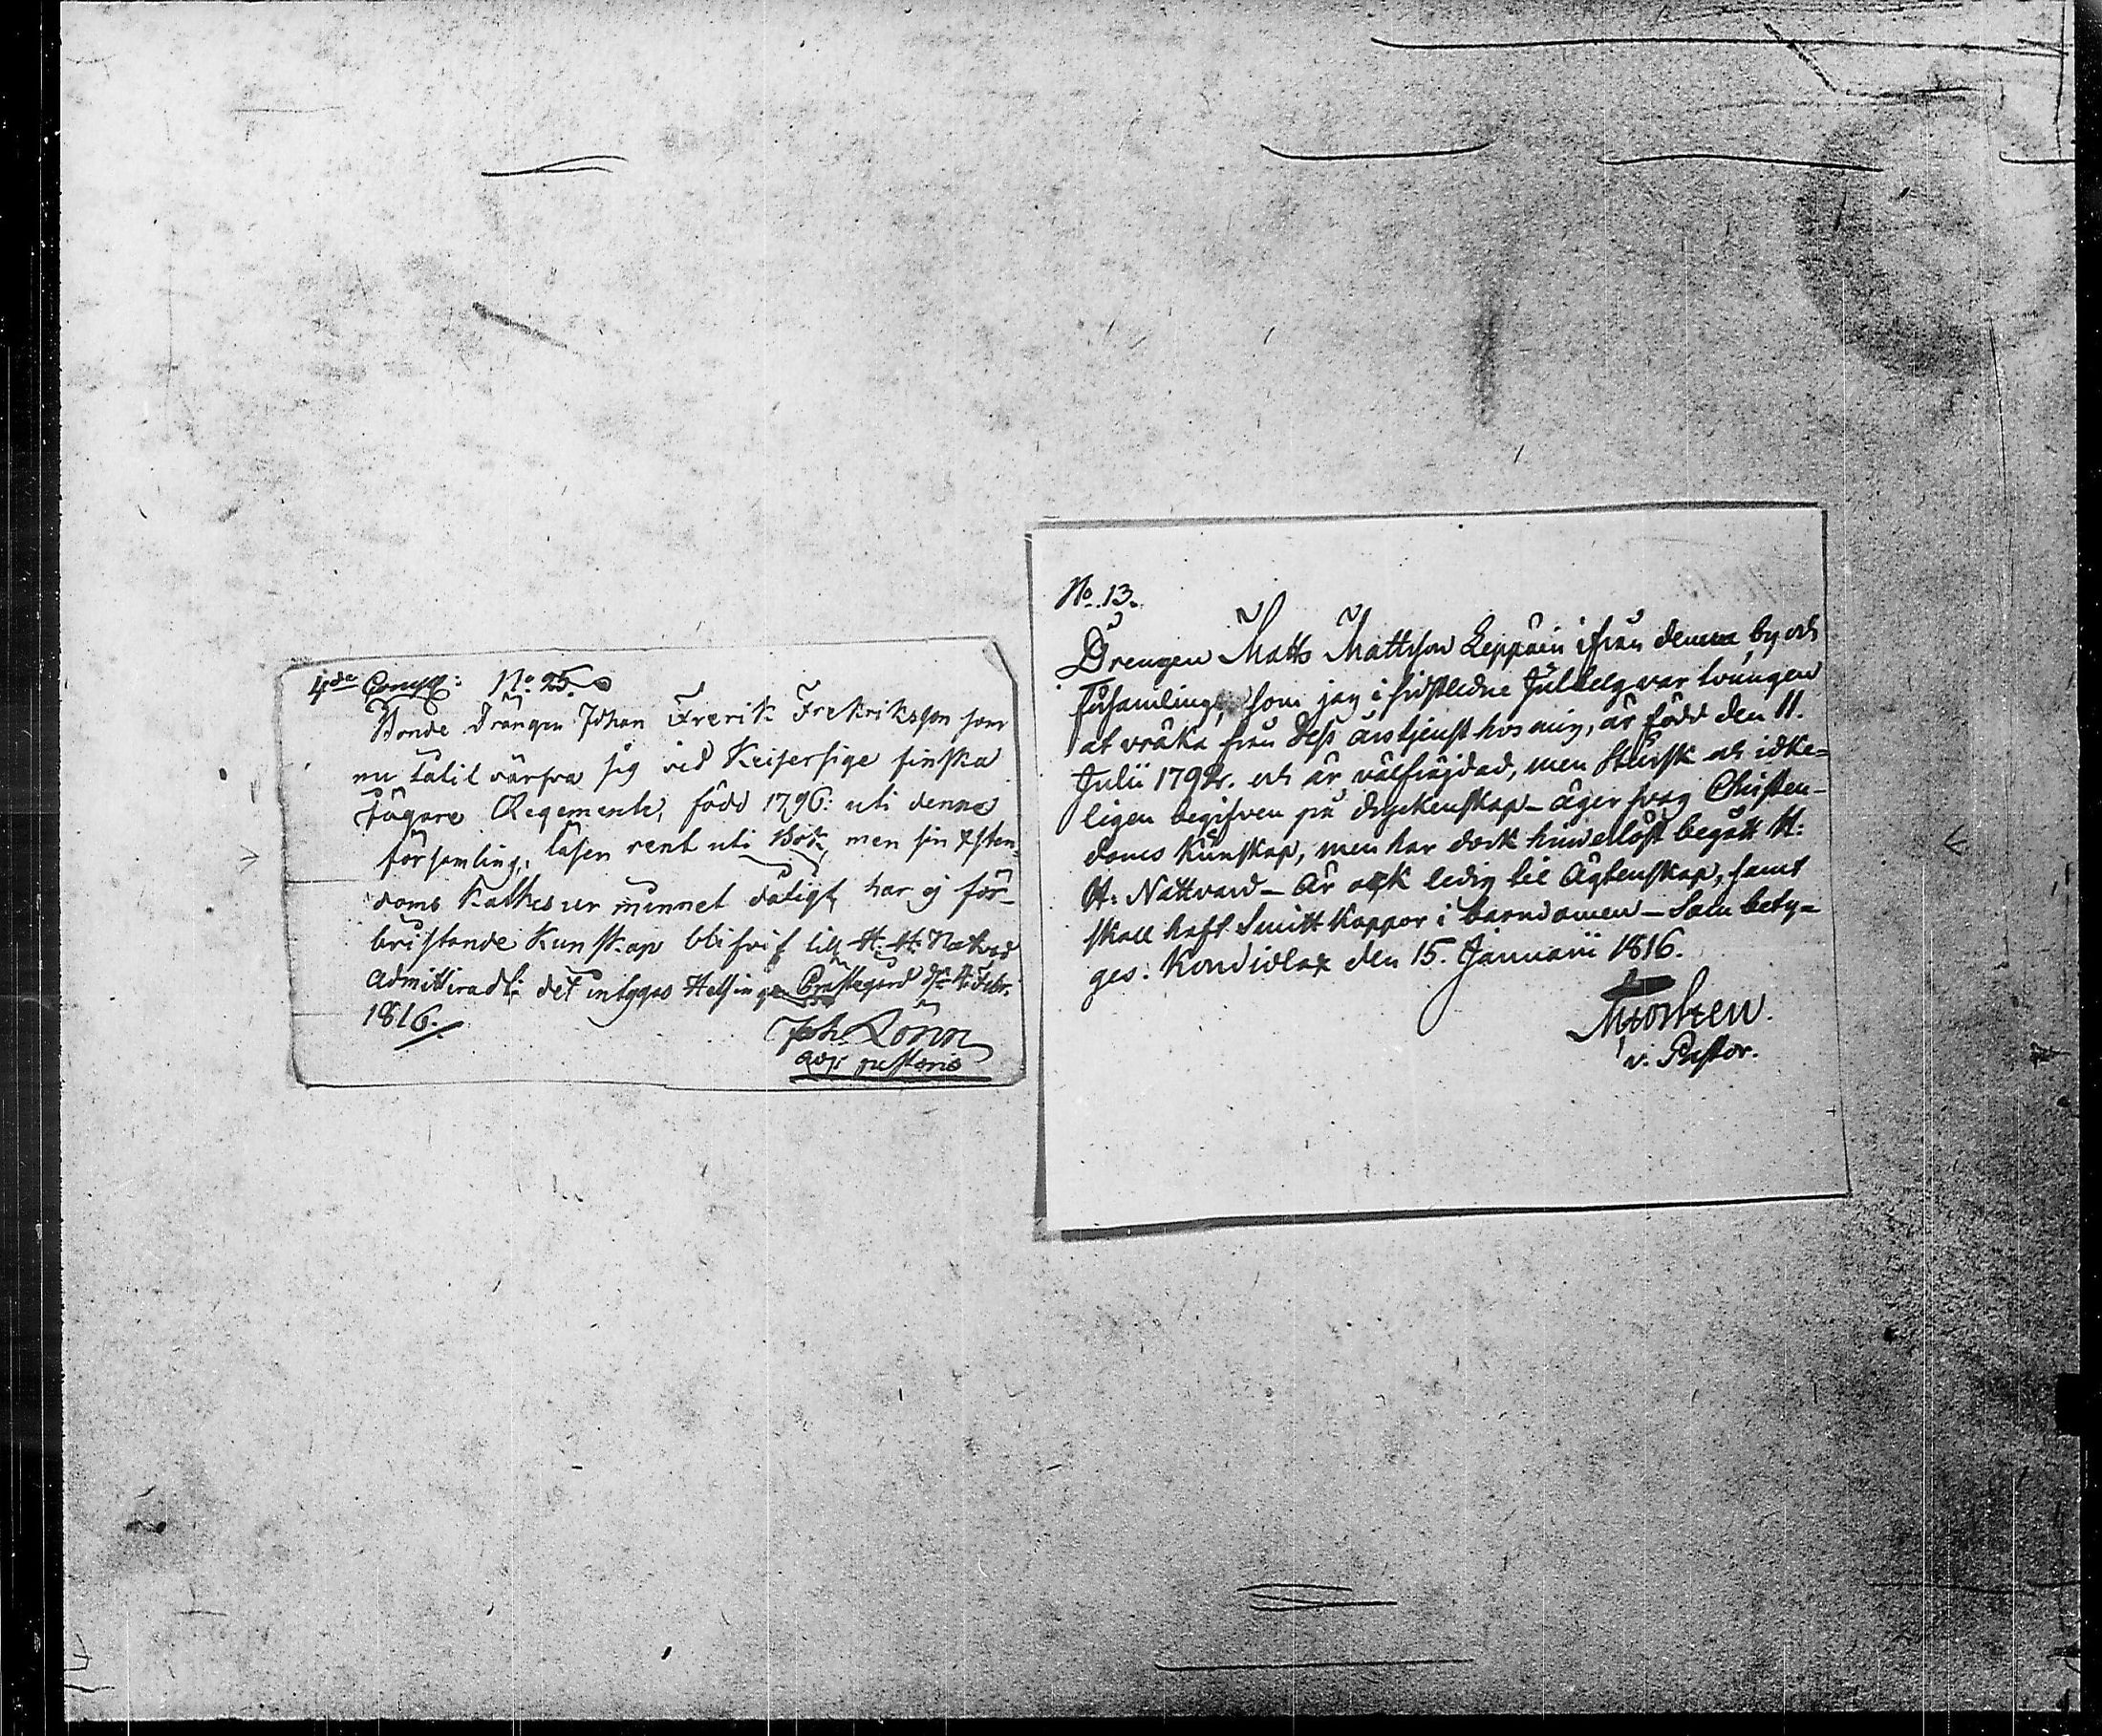 4de Comp: No. 25.
Bonde Drängen Johan Frerik Fredriksson som
nu låtit värfva sig vid Keiserlige finska
Jägare Regemente, född 1796: uti denna
församling, läser rent uti Bok, men sin Xsten-
doms Kathes ur minnet dåligt, har ej för
bristande Kunskap blifvit till H. H. Nattvard
admitterad; det intygas Helsinge Prästegård d. 4 Febr.
1816.
Joh. Lönn
adj. pastoris
No. 13.
Drengen Matts Mattsson Leppäin ifrån denna by och
Församling, som jag i sidstledne Julhelg var tvungen
at vräka från dess årstjenst hos mig, är född den 11.
Julii 1792. och är välfräjdad, men Stursk och idke-
ligen begifven på dryckenskap - äger svag Christen-
doms Kunskap, men har dock hinderlöst begått H:
H: Nattvard - är ock ledig til Ägtenskap, samt
skall haft Smitt Koppor i barndomen - Som bety-
ges. Kondiolax den 15. Januarii 1816.
v. Pastor.